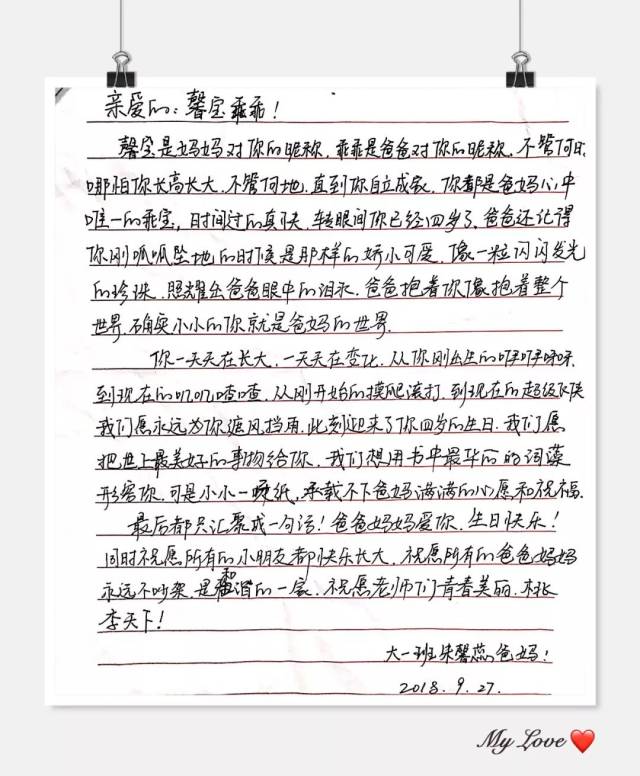 亲爱的：馨宝乖乖！
馨宝是妈妈对你的昵称，乖乖是爸爸对你的昵称，不管何时
哪怕你长高长大，不管何地，直到你自立成家，你都是爸妈心中
唯一的乖宝，时间过的真快，转眼间你已经四岁了，爸爸还记得
你刚呱呱坠地的时候是那样的娇小可爱，像一粒闪闪发光
的珍珠，照耀出爸爸眼中的泪水，爸爸抱着你像抱着整个
世界，确实小小的你就是爸妈的世界.
你一天天在长大，一天天在变化，从你刚出生的咿咿呀呀
到现在的叽叽喳喳，从刚开始的摸爬滚打，到现在的超级飞侠
我们愿永远为你遮风挡雨，此刻迎来了你四岁的生日，我们愿
把世上最美好的事物给你，我们想用书中最华丽的词藻
形容你，可是小小一张纸，承载不下爸妈满满的心愿和祝福.
最后都只汇聚成一句话！爸爸妈妈爱你，生日快乐！
同时祝愿所有的小朋友都快乐长大，祝愿所有的爸爸妈妈
永远不吵架，是和谐的一家，祝愿老师们青春美丽，桃
李天下！
大一班朱馨蕊爸妈！
2018.9.27.
My Love